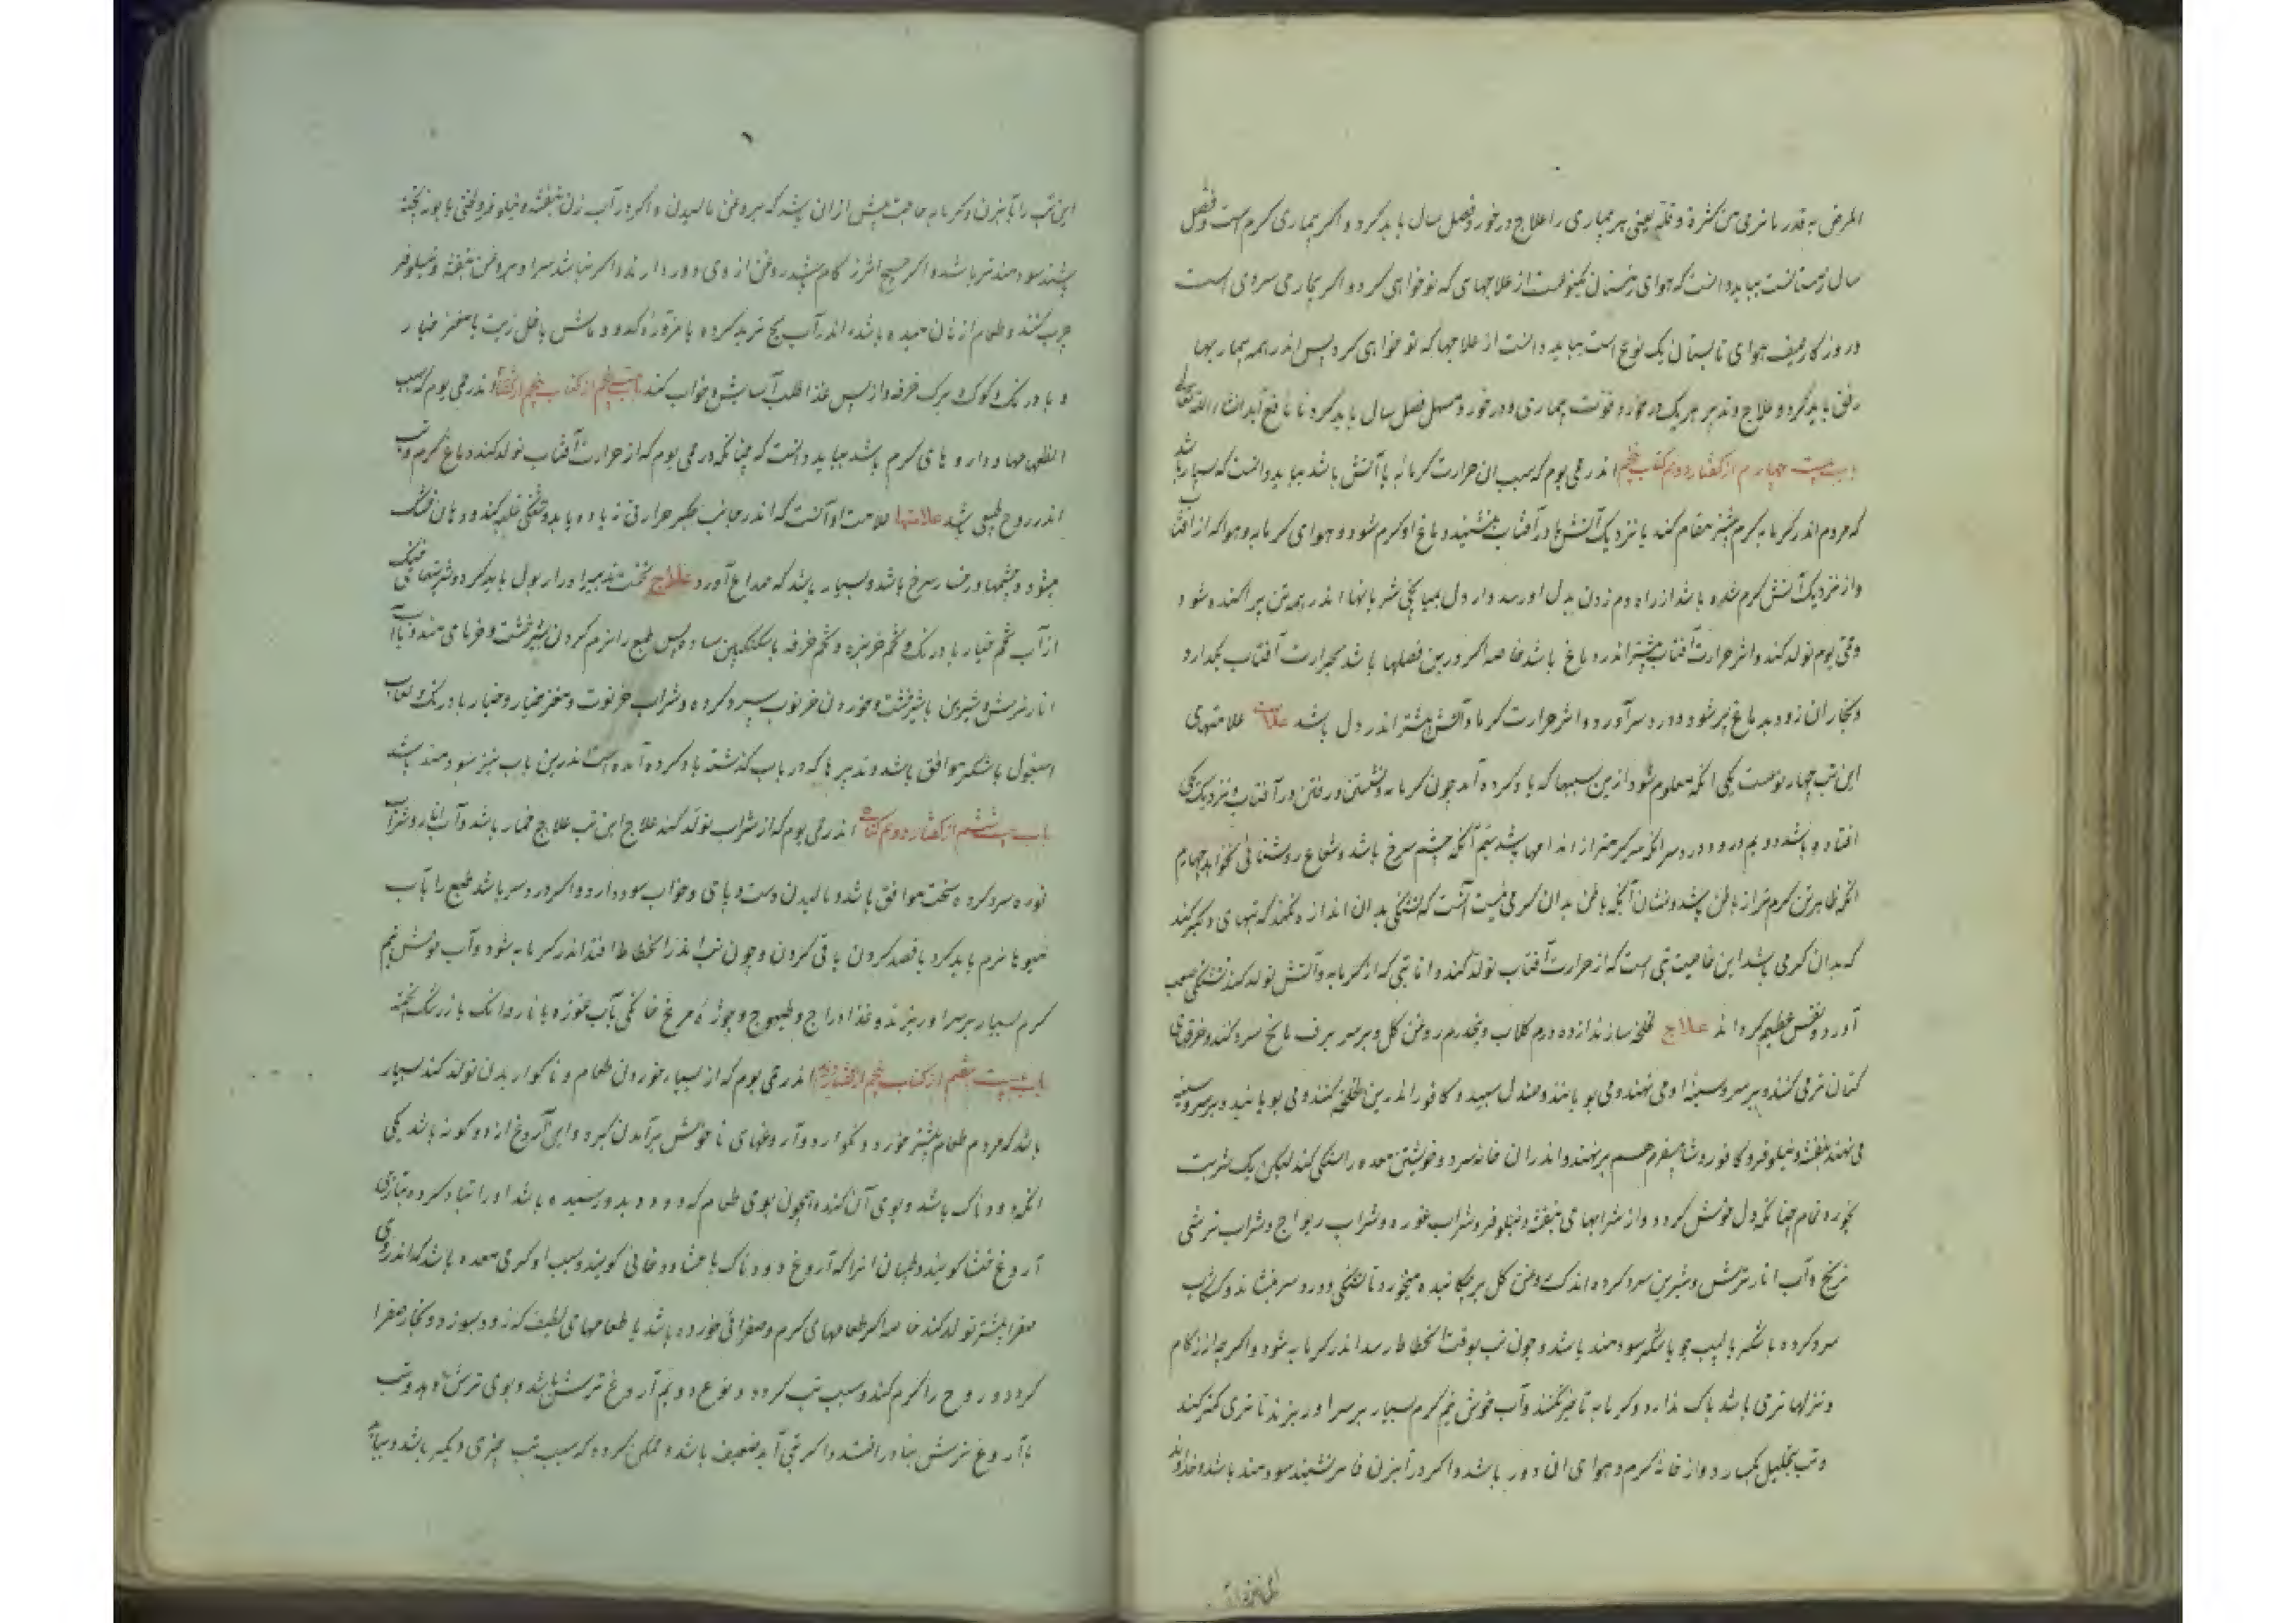 المرض به قدر ما نری من کثرة وقلة یعنی هر بیماری را علاج درخور فصل سال باید کرد و اکر بیماری کرم است و فصل
سال زمستانست بباید دانست که هوای زمستان یکنوعست از علاجهای که تو خواهی کرد و اکر بیماری سردی است
در روزکار صیف هوای تابستان یک نوع است بباید دانست از علاجها که تو خواهی کرد پس اندر همه بیماریها
رفق باید کرد و علاج و تدبیر هر یک درخور و قوت بیماری و درخور و فصل سال باید کرد تا نافع آید انشاء الله تعالی
باب بیست چهارم از کفتار دوم کتاب پنجم اندر حمی یوم که سبب ان حرارت کرمابه یا آتش باشد بباید دانست که بسیار باشد
که مردم اندر کرمابه کرم بیشتر مقام کند یا نزدیک آتش یا در آفتاب بنشیند دماغ او کرم شود و هوای کرمابه و هوا که از آفتاب
و از نزدیک آتش کرم شده باشد از راه دم زدن بدل او رسد و از دل بمیانجی شریانها اندر همه تن پراکنده شود
و حمی یوم تولد کند و اثر حرارت آفتاب بیشتر اندر دماغ باشد خاصه اکر درین فصلها باشد بحرارت آفتاب بکدارد
و بخار ان زود بدماغ بر شود و درد سر آورد و اثر حرارت کرما و آتش بیشتر اندر دل باشد علامت علامتهای
این تب چهار نوعست یکی انکه معلوم شود ازین سببها که یاد کرده آمد چون کرمابه و نشستن و رفتن در آفتاب و نزدیک
افتاده باشد دویم درد سر و انکه سر کرمتر از اندامها باشد سیم آنکه چشم سرخ باشد و شعاع روشنائی نخواهد چهارم
انکه ظاهر تن کرم تر از باطن باشد و نشان آنکه باطن بدان کرمی نیست آنست که تشنکی بدان اندازه نکند که تبهای دیکر کند
که بدان کرمی باشد این خاصیت تبی است که از حرارت آفتاب تولد کند و اما تبی که از کرمابه و آتش تولد کند تشنکی صعب
آورد و نفس عظیم کرداند علاج لخلخه سازند از ده درم کلاب و پنجدرم روغن کل و بر سر برف یا یخ سرد کنند و خرقهای
کتان تر می کنند و بر سر و سینه او می نهند و می بویانند و صندل سپید و کافور اندرین لخلخه کنند و می بویانند و بر سر و سینه
می نهند بنفشه و نیلوفر و کافور و شاهسفرم هم برنهند و اندران خانه سرد و خویشتن معده را تنکی کند لیکن یک شربت
بخورد تمام چنانکه دل خوش کردد و از شرابهای بنفشه و نیلوفر و شراب غوره و شراب ریواج و شراب ترشی
ترنج و آب انار ترش و شیرین سرد کرده اندک روغن کل بر چکانیده میخورد تا تشنکی و درد سر بنشاند و کشکاب
سرد کرده با شکر یا پست جو با شکر سودمند باشد و چون تب بوقت انحطاط رسد اندر کرمابه شود و اکرچه از زکام
و نزلها تری باشد باک ندارد و کرمابه تاخیر نکنند و آب خوش نیم کرم بسیار بر سر او ریزند تا تری کمتر کند
و تب بتحلیل بکسارد و از خانه کرم و هوای ان دور باشد و اکر در آبزن فاتر نشیند سودمند باشد و خداوند
این تب را
این تب را بآبزن و کرمابه حاجت بیش از ان باشد که بروغن مالیدن و اکر در آب زن بنفشه و نیلوفر و لختی بابونه پخته
باشند سودمندتر باشد و اکر هیچ اثر زکام باشد روغن از وی دور دارند و اکر نباشد سر او بروغن بنفشه و نیلوفر
چرب کنند و طعام از نان میده باشد اندر آب یخ ترید کرده یا مزوره کدو و ماش یا خل زیت با مغز خیار
و بادرنک و کوک و برک خرفه و از پس غذا طلب آسایش و خواب کند باب بیست پنجم از کتاب پنجم از کفتار اندر حمی یوم که سبب
الطعامها و داروهای کرم باشد بباید دانست که چنانکه در حمی یوم که از حرارت آفتاب تولد کند دماغ کرم و تب
اندر روح طبیعی باشد علامتها علامت او آنست که اندر جانب جکر حرارتی زیاده یابد و تشنکی غلبه کند و دهان خشک
میشود و چشمها و رخسار سرخ باشد و بسیار باشد که صداع آورد علاج نخست تدبیر ادرار بول باید کرد و شربتهای خنک
از آب تخم خیار بادرنک و تخم خربزه و تخم خرفه با سکنکبین ساده پس طبع را نرم کردن بشیرخشت و خرمای هندو و بآب
انار ترش و شیرین با شیرخشت و خوردن خرنوب سرد کرده و شراب خرنوت و مغز خیار و خیار بادرنک و لعاب
اسبغول با شکر موافق باشد و تدبیرها که در باب کذشته یاد کرده آمده است اندرین باب نیز سودمند باشد
باب بیست ششم از کفتار دوم کتاب اندر حمی یوم که از شراب تولد کند علاج این تب علاج خمار باشد و آب انار و شراب
غوره سرد کرده سخت موافق باشد و مالیدن دست و پای و خواب سود دارد و اکر درد سر باشد طبع را بآب
میوها نرم باید کرد یا فصد کردن یا قی کردن و چون تب اندر انحطاط افتد اندر کرمابه شود و آب خوش نیم
کرم بسیار بر سر او ریزند و غذا دراج و طیهوج و جوژه مرغ خانکی بآب غوره یا ناردانک یا زرشک پخته
باب بیست هفتم از کتاب پنجم از کفتار دوم اندر حمی یوم که از بسیار خوردن طعام و ناکواریدن تولد کند بسیار
باشد که مردم طعام بیشتر خورد و نکوارد و آروغهای ناخوش برآمدن کیرد و این آروغ از دو کونه باشد یکی
انکه دودناک باشد و بوی آن کنده همچون بوی طعام که دود بدو رسیده باشد او را تباه کرده بتازی
آروغ جشا کویند و طبیبان انرا که آروغ دودناک باشد جشاء دخانی کویند و سبب او کرمی معده باشد که اندر وی
صفرا بیشتر تولد کند خاصه اکر طعامهای کرم و صفرائی خورده باشد یا طعامهای لطیف که زود بسوزد و بخار صفرا
کردد و روح را کرم کند و سبب تب کردد و نوع دویم آروغ ترش باشد و بوی ترش دهد و تب
با آروغ ترش بنادر افتد و اکر تبی آید ضعیف باشد و ممکن کردد که سبب تب چیزی دیکر باشد و بباید